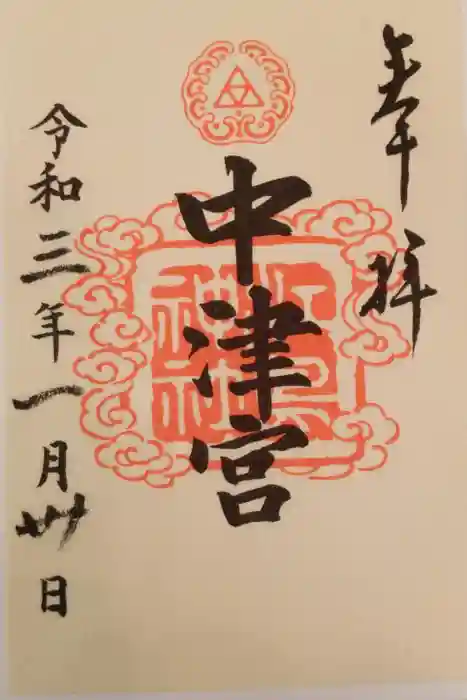 奉拝
中津宮
令和三年一月卅日